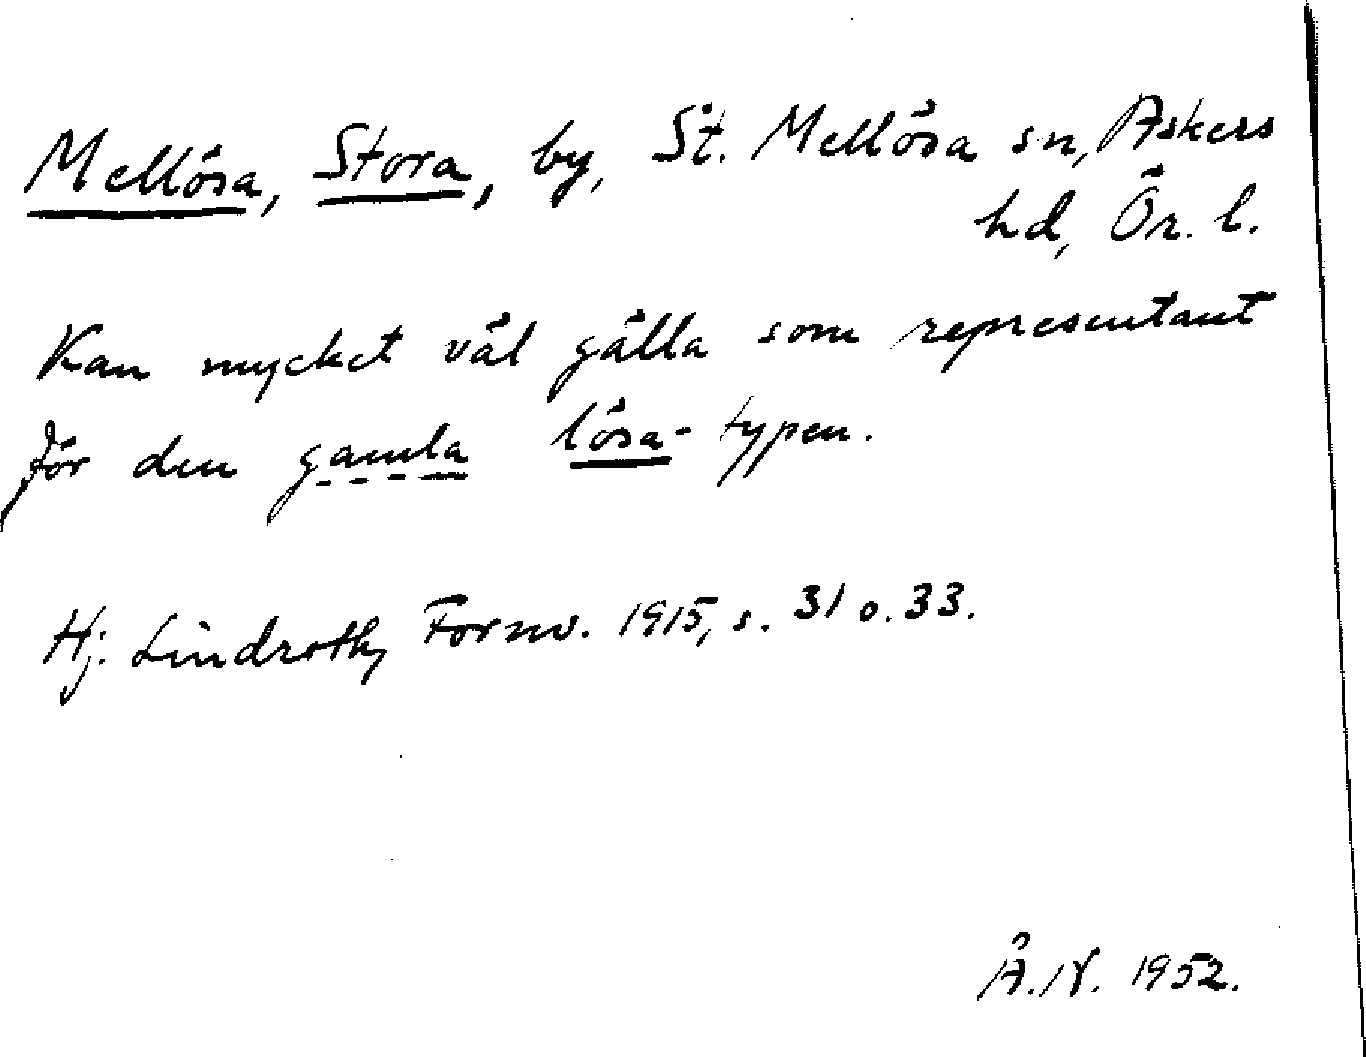 Mellösa, Stora, by, St. Mellösa sn, Askers
hd, Ör. l.
Kan mycket väl gälla som representant
för den gamla lösa-typen.
Hj. Lindroth, Fornv. 1915, s. 31 o. 33.
Å.N. 1952.